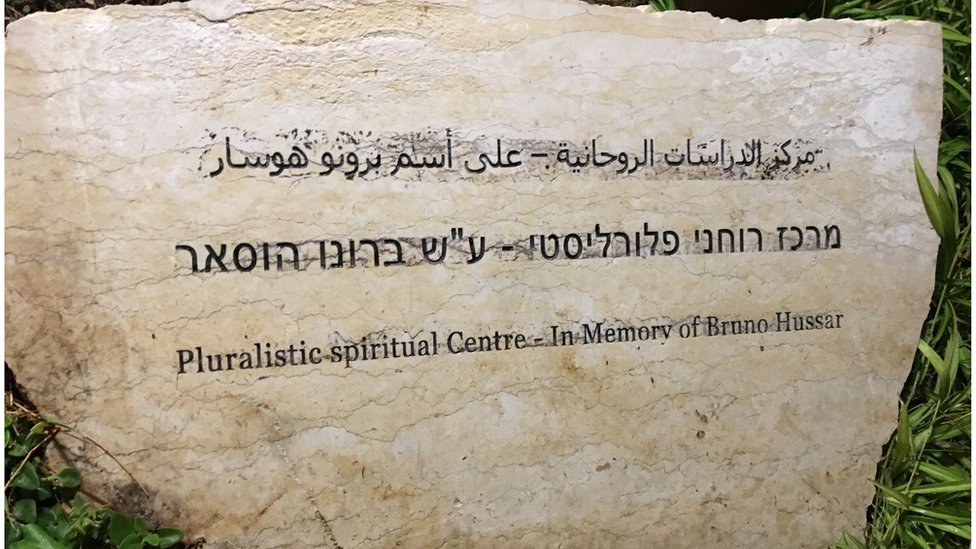 مركز الدراسات الروحانية – على أسم برونو هوسار
מרכז רוחני פלורליסטי - ע"ש ברונו הוסאר
Pluralistic spiritual Centre - In Memory of Bruno Hussar